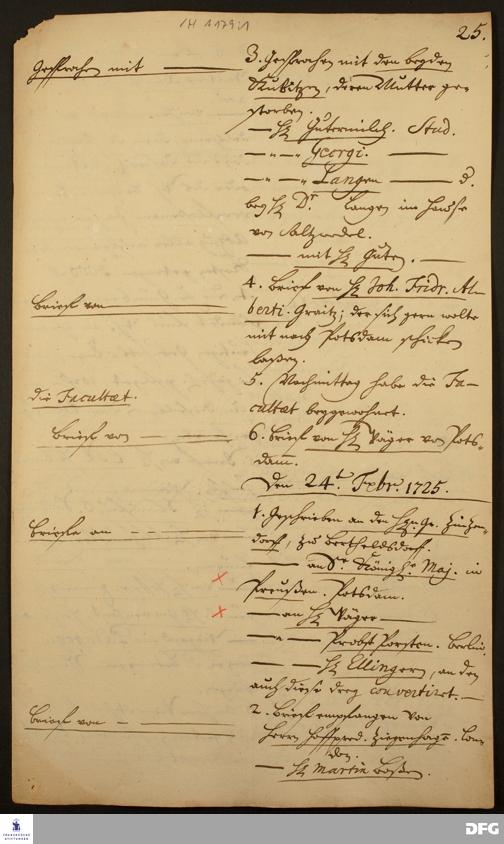 /H A 179:1
25.
Gesprochen mit
3. Gesprochen mit den beyden
deren Mutter ge-
storben.
— H. Gutermilch. Stud.
— " — " Georgi. —
— " — " Langen — d.
bey H. Dr. Langen im Hause
von Saltzwedel.
— mit H. Guten. —
Brief von
4. Brief von H. Joh. Fridr. Al-
berti. Graitz; der sich gern wolte
mit nach Potsdam schicken
laßen.
die Facultaet.
5. Nachmittag habe die Fa-
cultaet beygewohnet.
Brief von
6. Brief von H. Jäger von Pots-
dam.
Den 24t. Febr. 1725.
Briefe an
1. Geschrieben an den H. Gr. Zinzen-
dorff, zu Bertheldsdorff.
— an Sr. Königl. Maj. in
Preußen. Potsdam.
— an H. Jäger —
— " — Probst Porsten. Berlin.
— — H. Ellingern, an den
auch diese drey convertiret. —
Brief von
2. Brief empfangen von
Herrn Hoffpred. Ziegenhagen. Lon-
don.
— H. Martin Boßen.
FRANCKESCHE STIFTUNGEN
DFG